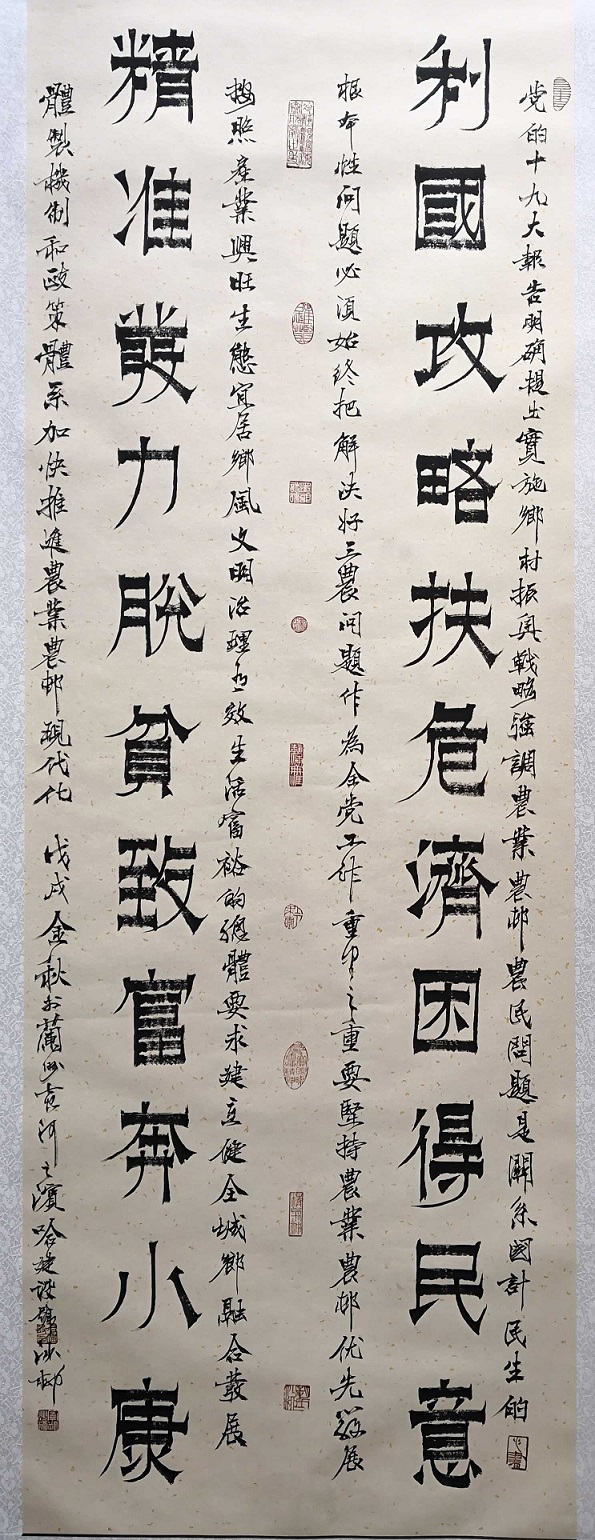 党的十九大報告明确提出實施鄉村振興戰略強調農業農邨農民問題是關系國計民生的
利國攻略扶危濟困得民意
根本性问題必須始终把解决好三農问題作為全党工作重中之重要堅持農業農邨优先發展
按照産業興旺生態宜居鄉風文明治理有效生活富裕的總體要求建立健全城鄉融合發展
精准發力脫貧致富奔小康
體製機制和政策體系加快推進農業農邨現代化 戊戌金秋於蘭州黄河之濱哈建設錦